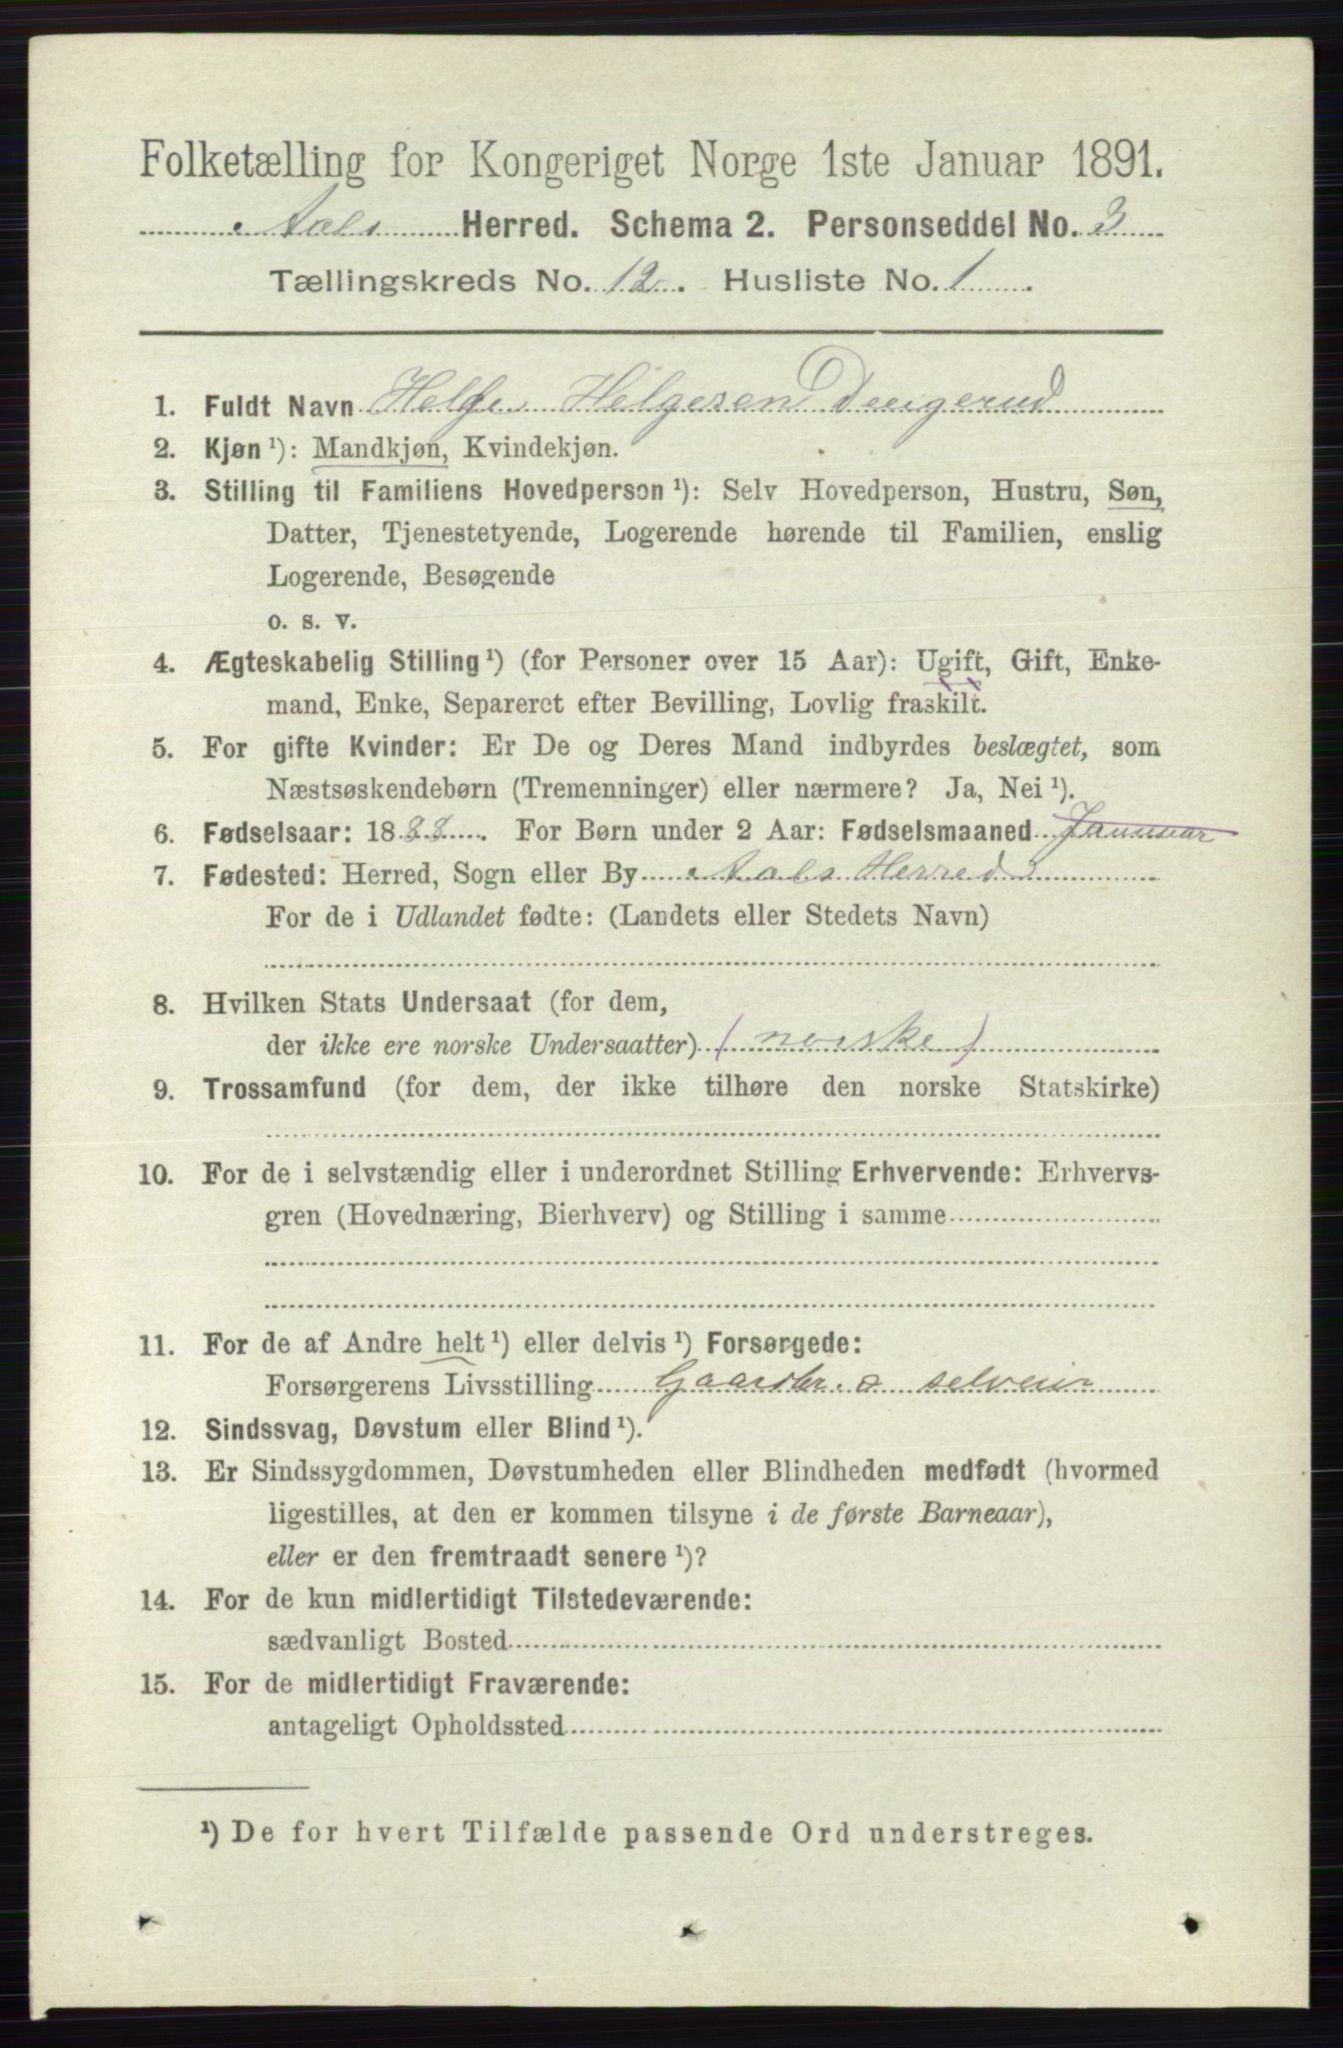 Folketælling for Kongeriget Norge 1ste Januar 1891.
Aals Herred. Schema 2. Personseddel No. 3
Tællingskreds No. 12. Husliste No. 1.
1. Fuldt Navn Helge Helgesen Dengerud
2. Kjøn ¹): Mandkjøn, Kvindekjøn.
3. Stilling til Familiens Hovedperson ¹): Selv Hovedperson, Hustru, Søn,
Datter, Tjenestetyende, Logerende hørende til Familien, enslig
Logerende, Besøgende
o. s. v.
4. Ægteskabelig Stilling ¹) (for Personer over 15 Aar): Ugift, Gift, Enke-
mand, Enke, Separeret efter Bevilling, Lovlig fraskilt.
5. For gifte Kvinder: Er De og Deres Mand indbyrdes beslægtet, som
Næstsøskendebørn (Tremenninger) eller nærmere? Ja, Nei ¹).
6. Fødselsaar: 1888. For Børn under 2 Aar: Fødselsmaaned Januar
7. Fødested: Herred, Sogn eller By Aals Herred
For de i Udlandet fødte: (Landets eller Stedets Navn)
8. Hvilken Stats Undersaat (for dem,
der ikke ere norske Undersaatter) (norske)
9. Trossamfund (for dem, der ikke tilhøre den norske Statskirke)
10. For de i selvstændig eller i underordnet Stilling Erhvervende: Erhvervs-
gren (Hovednæring, Bierhverv) og Stilling i samme
11. For de af Andre helt ¹) eller delvis ¹) Forsørgede:
Forsørgerens Livsstilling Gaardbr. & selveier
12. Sindssvag, Døvstum eller Blind ¹).
13. Er Sindssygdommen, Døvstumheden eller Blindheden medfødt (hvormed
ligestilles, at den er kommen tilsyne i de første Barneaar),
eller er den fremtraadt senere ¹)?
14. For de kun midlertidigt Tilstedeværende:
sædvanligt Bosted
15. For de midlertidigt Fraværende:
antageligt Opholdssted
¹) De for hvert Tilfælde passende Ord understreges.